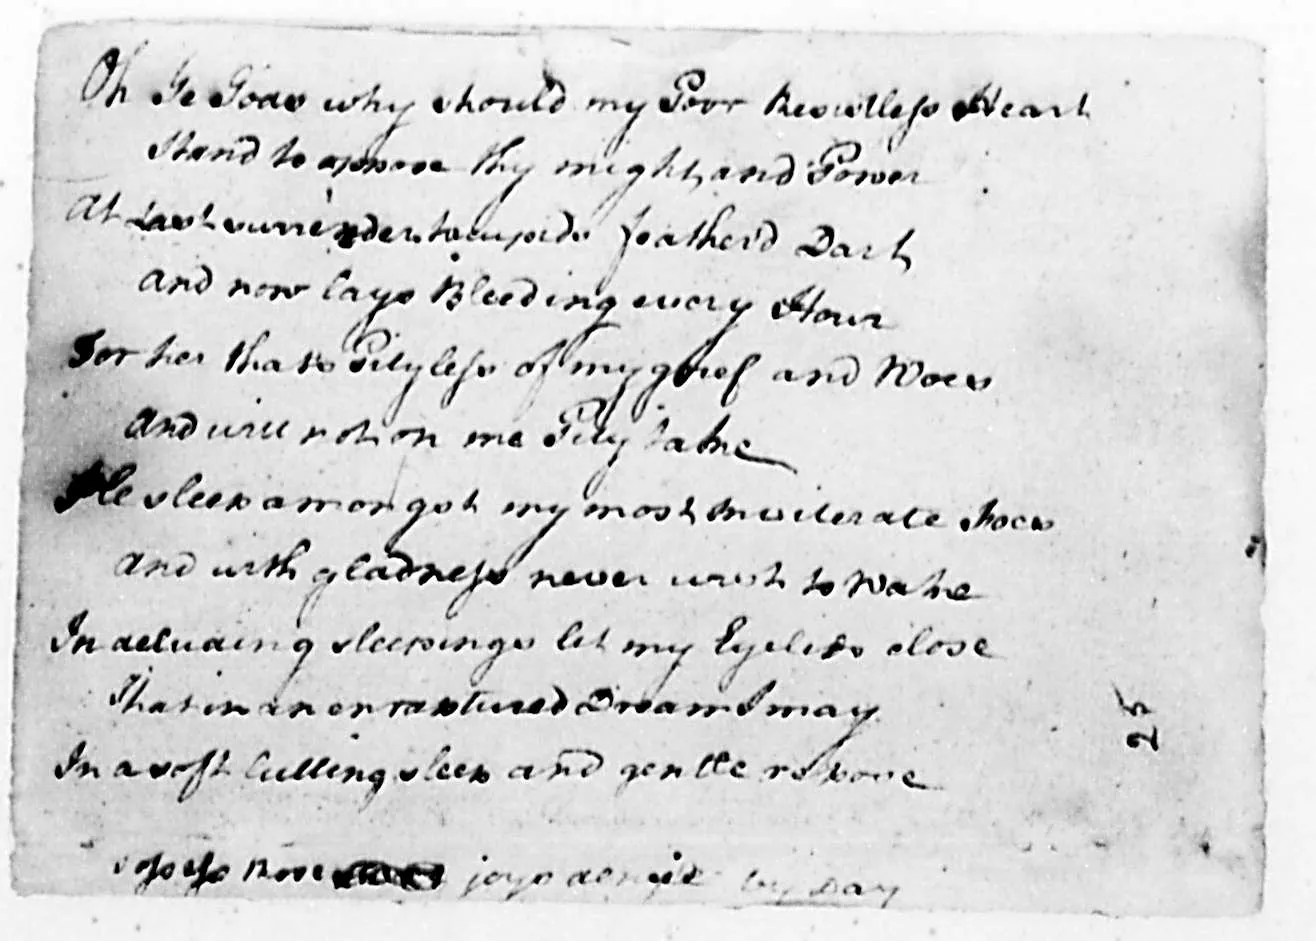 Oh Ye Gods why should my Poor Resistless Heart
Stand to oppose thy might and Power
At Last surrender to cupids feather'd Dart
and now lays Bleeding every Hour
For her that's Pityless of my grief and Woes
and will not on me Pity take
Ile sleep amongst my most Inviterate Foes
and with gladness never wish to Wake
In deluding sleepings let my Eyelids close
That in an enraptured Dream I may
In a soft lulling sleep and gentle repose
Possess those joys denied by Day
25